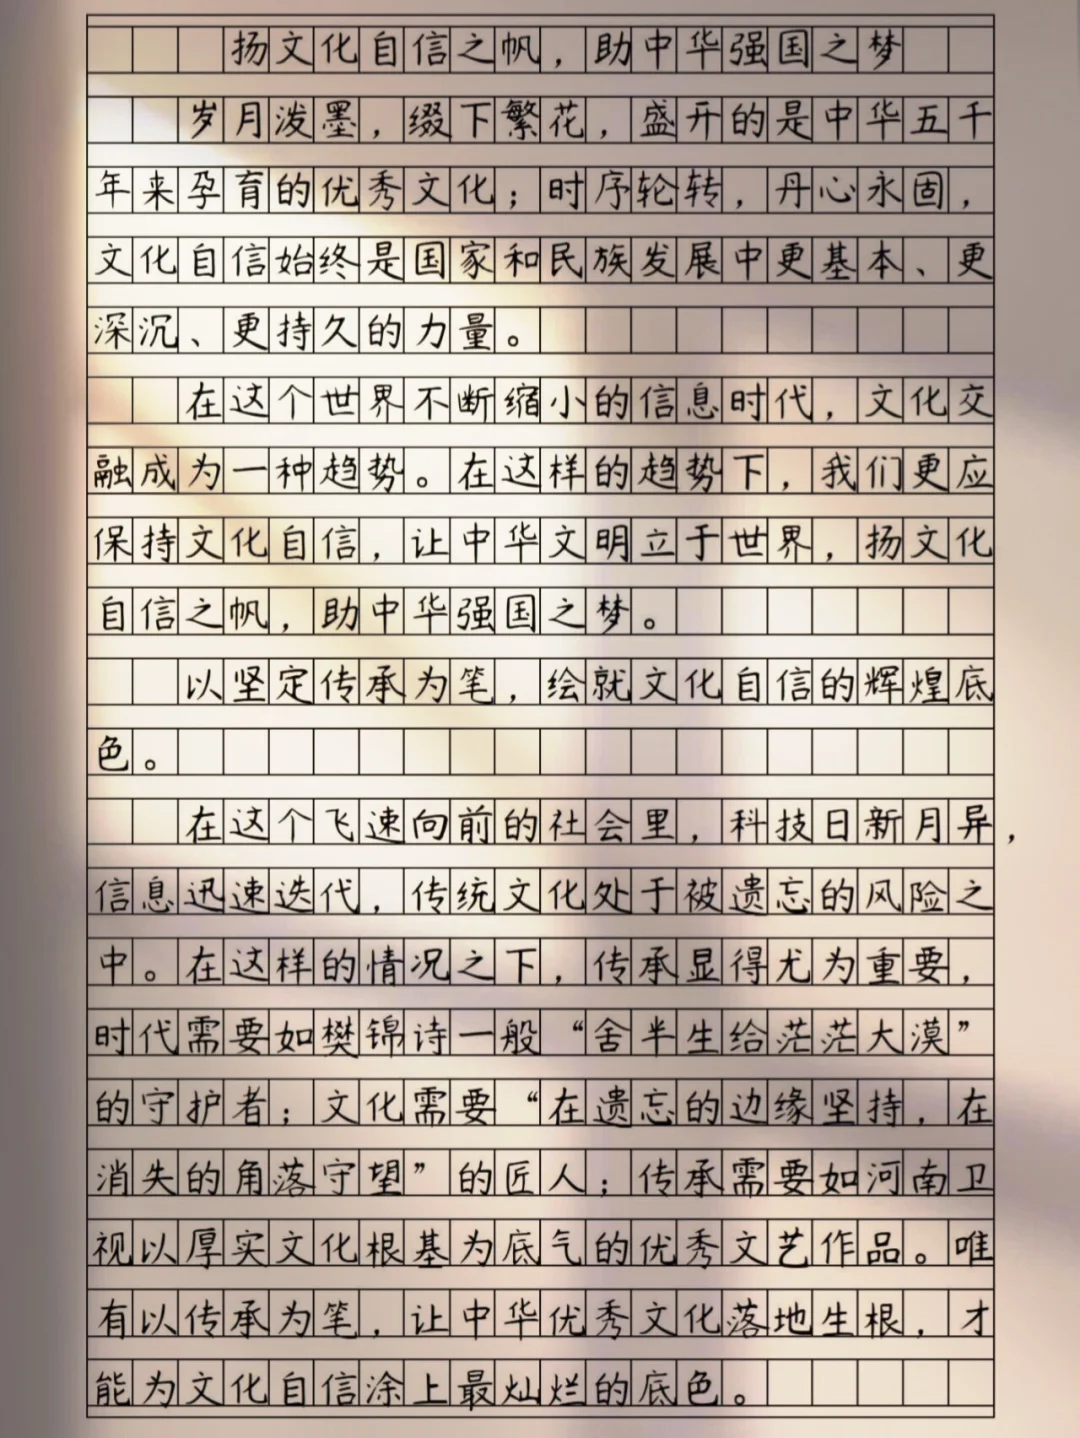 扬文化自信之帆，助中华强国之梦
岁月泼墨，缀下繁花，盛开的是中华五千
年来孕育的优秀文化；时序轮转，丹心永固，
文化自信始终是国家和民族发展中更基本、更
深沉、更持久的力量。
在这个世界不断缩小的信息时代，文化交
融成为一种趋势。在这样的趋势下，我们更应
保持文化自信，让中华文明立于世界，扬文化
自信之帆，助中华强国之梦。
以坚定传承为笔，绘就文化自信的辉煌底
色。
在这个飞速向前的社会里，科技日新月异，
信息迅速迭代，传统文化处于被遗忘的风险之
中。在这样的情况之下，传承显得尤为重要，
时代需要如樊锦诗一般“舍半生给茫茫大漠”
的守护者；文化需要“在遗忘的边缘坚持，在
消失的角落守望”的匠人；传承需要如河南卫
视以厚实文化根基为底气的优秀文艺作品。唯
有以传承为笔，让中华优秀文化落地生根，才
能为文化自信涂上最灿烂的底色。